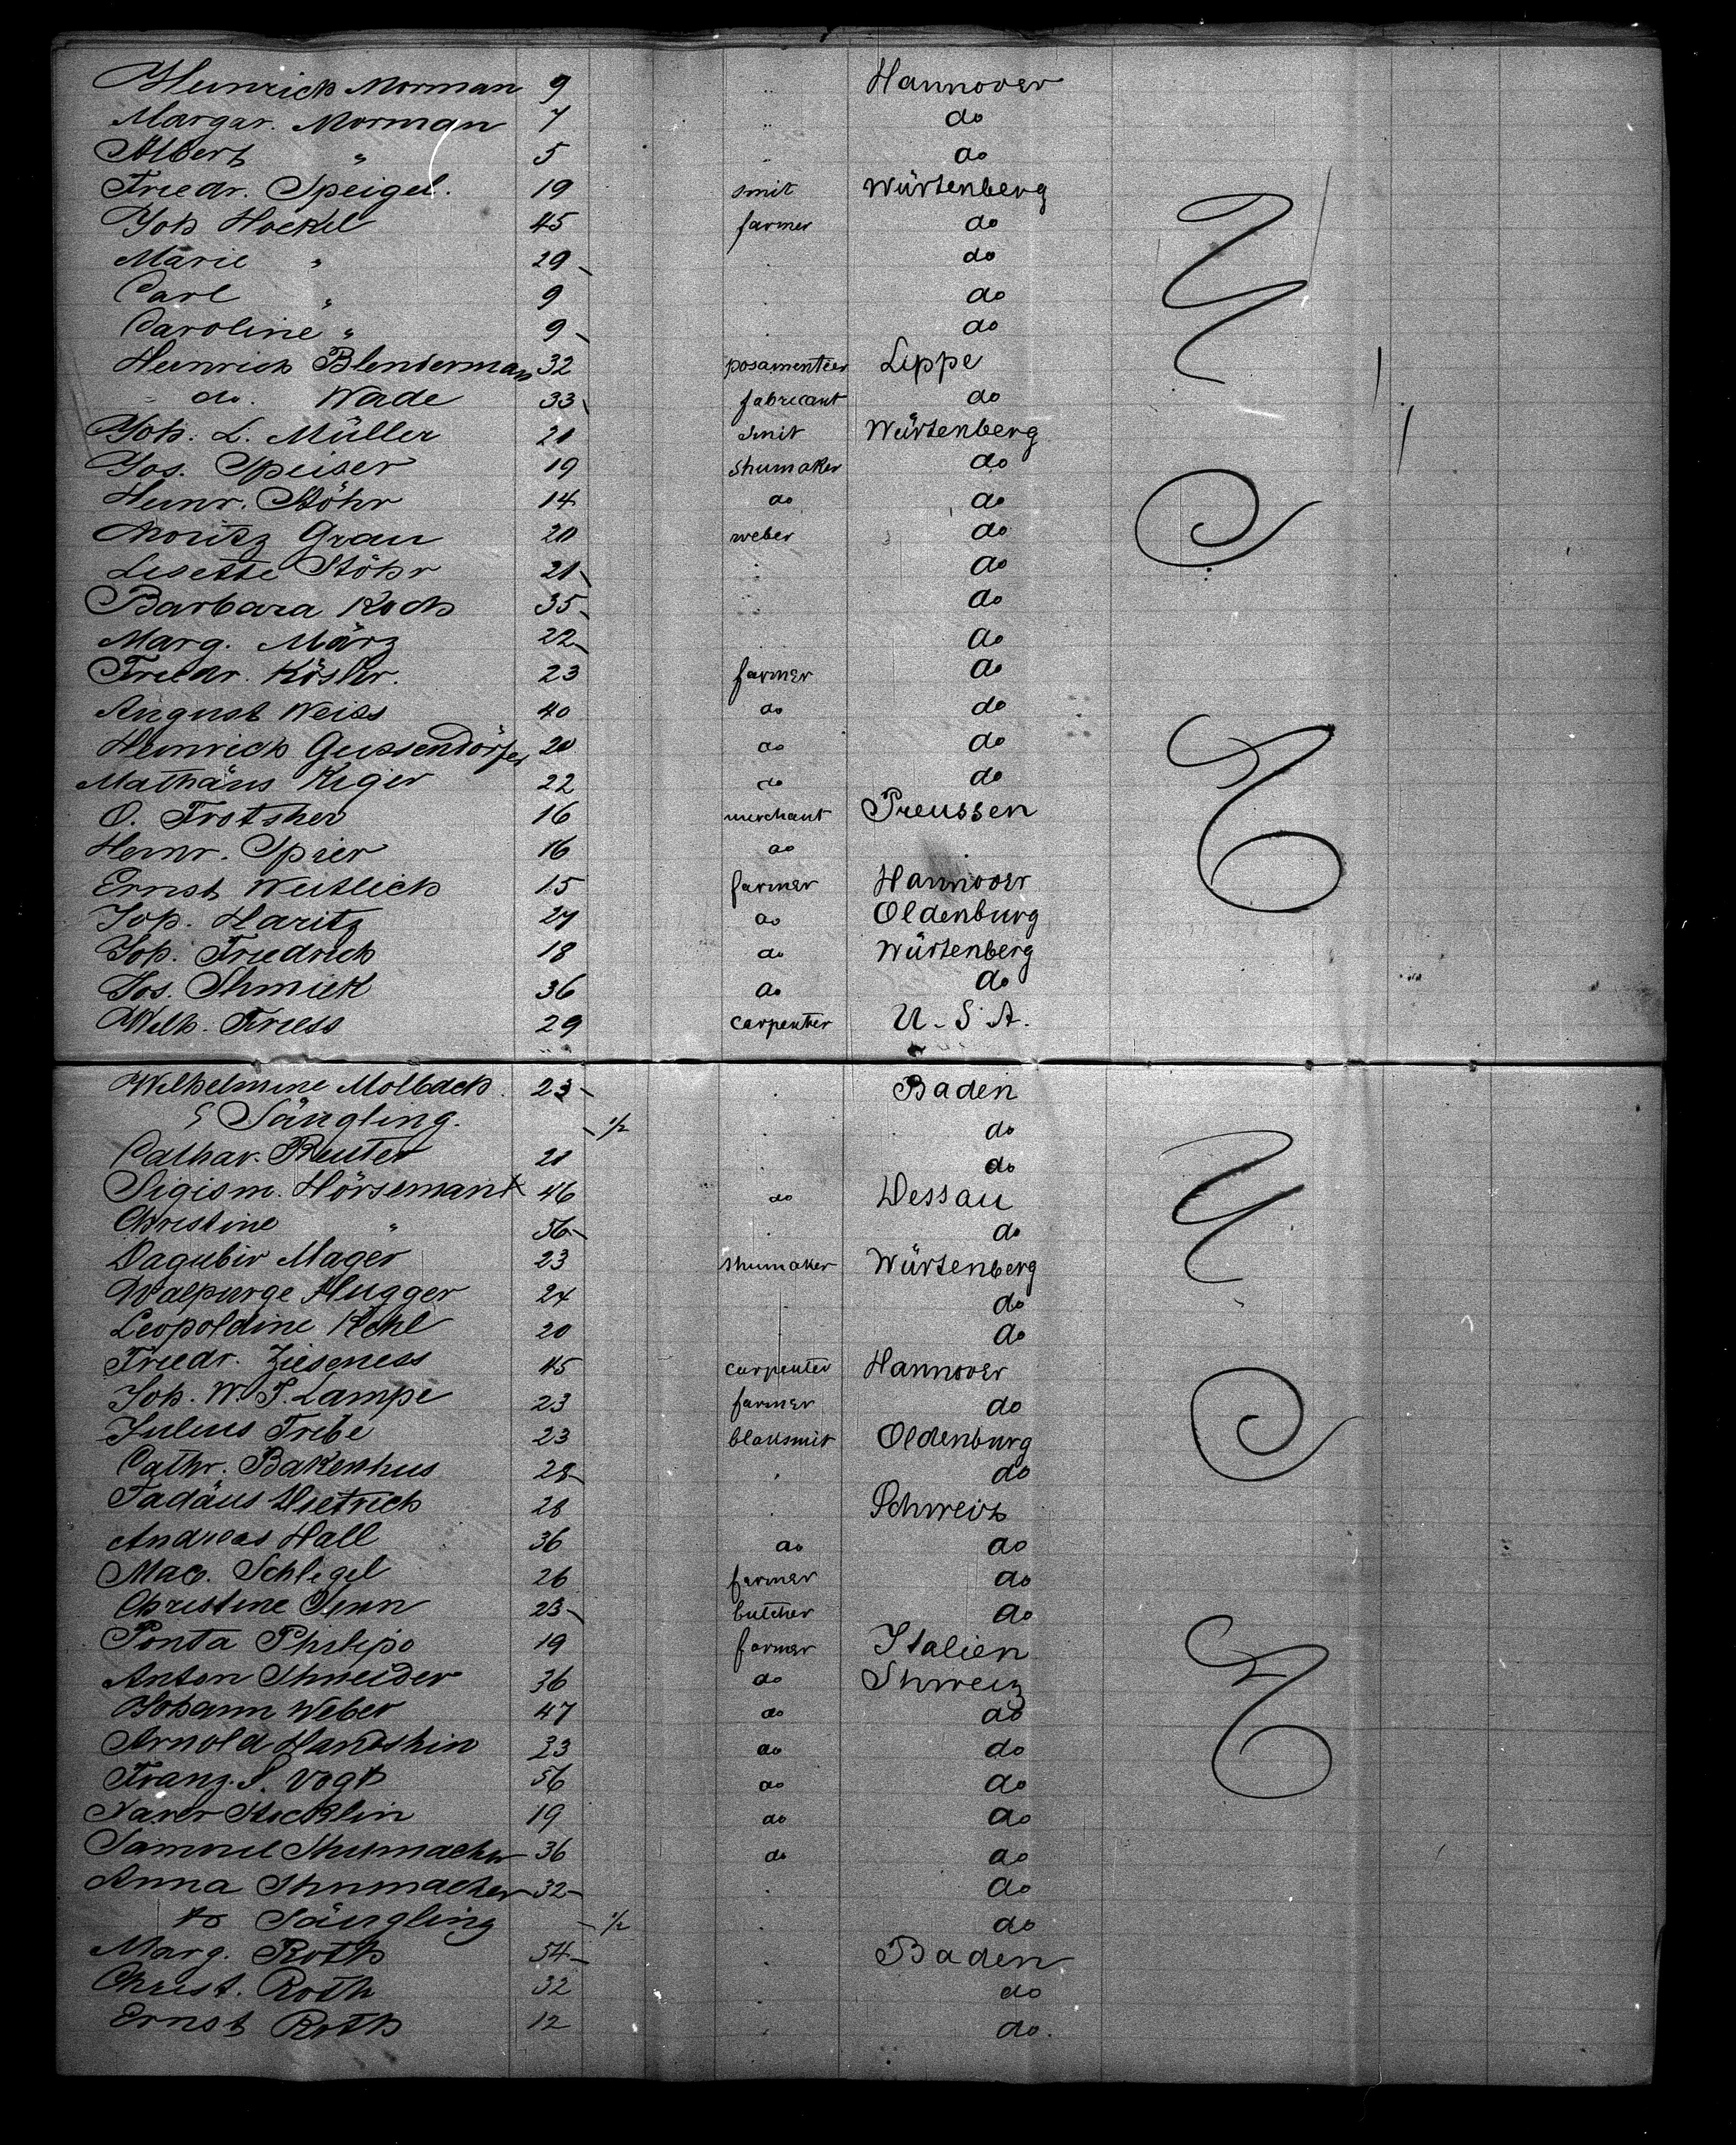 Heinrich Morman 9 " Hannover
Margar. Morman 7 " do
Albert " 5 " do
Friedr. Speigel. 19 smit Würtenberg
Joh Hockel 45 farmer do
Marie " 29 do
Carl " 9 do
Caroline " 9 do
Heinrich Blenderman 32 posamentier Lippe
" do. Wade 33 fabricant do
Joh. L. Müller 21 smit Würtenberg
Jos. Speiser 19 shumaker do
Heinr. Stöhr 14 do do
Moritz Grau 20 weber do
Lisette Stöhr 21 do
Barbara Koch 35 do
Marg. März 22 do
Friedr. Köslr. 23 farmer do
August Weiss 40 do do
Heinrich Gussendörfer 20 do do
Mathäus Kiger 22 do do
O. Trotsher 16 merchant Preussen
Heinr. Spier 16 do
Ernst Weitlich 15 farmer Hannover
Joh. Haritz 27 do Oldenburg
Joh. Friedrich 18 do Würtenberg
Jos. Shmick 36 do do
Wilh. Friess 29 carpenter U. S. A.
Wilhelmine Molbach. 23 Baden
Säugling. 1/2 do
Cathar. Reuter 21 do
Sigism. Hörseman 46 do Dessau
Christine " 56 do
Dagubir Mager 23 shumaker Würtenberg
Walpurge Hugger 24 do
Leopoldine Kehl 20 do
Friedr. Zieseness 45 carpenter Hannover
Joh. W. F. Lampe 23 farmer do
Julius Tribe 23 blaksmit Oldenburg
Cathr. Bakenhus 28 do
Tadäus Dietrich 28 Schweiz
Andreas Hall 36 do do
Mac. Schlegel 26 farmer do
Christine Senn 23 butcher do
Ponta Philipo 19 farmer Italien
Anton Shneider 36 do Shweiz
Johann Weber 47 do do
Arnold Handshin 33 do do
Franz. S. Vogt 56 do do
Xaver Stocklin 19 do do
Samuel Shumacher 36 do do
Anna Shumacher 32 do
do Säugling 1/2 do
Marg. Roth 54 Baden
Christ. Roth 32 do
Ernst Roth 12 do.